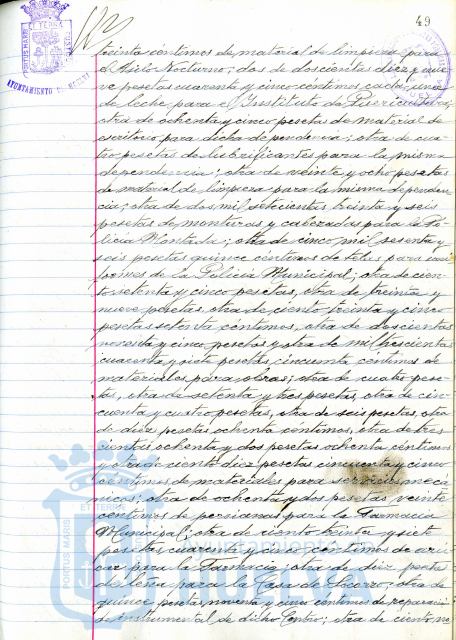 49
PORTUS MARIS ET TERRÆ CUSTODIA
AYUNTAMIENTO DE HUELVA
treinta céntimos de material de limpieza para
el Asilo Nocturno; dos de doscientas diez y nue
ve pesetas cuarenta y cinco céntimos cada una
de leche para el Instituto de Puericultura;
otra de ochenta y cinco pesetas de material de
escritorio para dicha dependencia; otra de cua
tro pesetas de lubrificantes para la misma
dependencia; otra de veinte y ocho pesetas
de material de limpieza para la misma dependen
cia; otra de dos mil setecientas treinta y seis
pesetas de monturas y cabezadas para la Po
licia Montada; otra de cinco mil sesenta y
seis pesetas quince céntimos de telas para uni
formes de la Policia Municipal; otra de cien
to setenta y cinco pesetas, otra de treinta y
nueve pesetas, otra de ciento treinta y cinco
pesetas setenta céntimos, otra de doscientas
noventa y cinco pesetas y otra de mil trescientas
cuarenta y siete pesetas cincuenta céntimos de
materiales para obras; otra de cuatro pese
tas, otra de setenta y tres pesetas, otra de cin
cuenta y cuatro pesetas, otra de seis pesetas, otra
de diez pesetas ochenta céntimos, otra de tres
cientas ochenta y dos pesetas ochenta céntimos
y otra de ciento diez pesetas cincuenta y cinco
céntimos de materiales para servicios mecá
nicos; otra de ochenta y dos pesetas veinte
céntimos de persianas para la Farmacia
Municipal; otra de ciento treinta y siete
pesetas cuarenta y cinco céntimos de azú
car para la Farmacia; otra de diez pesetas
de leña para la Casa de Socorro; otra de
quince pesetas noventa y cinco céntimos de reparación
de instrumental de dicho Centro; otra de ciento no
PORTUS MARIS ET TERRÆ CUSTODIA
Ayuntamiento de
HUELVA